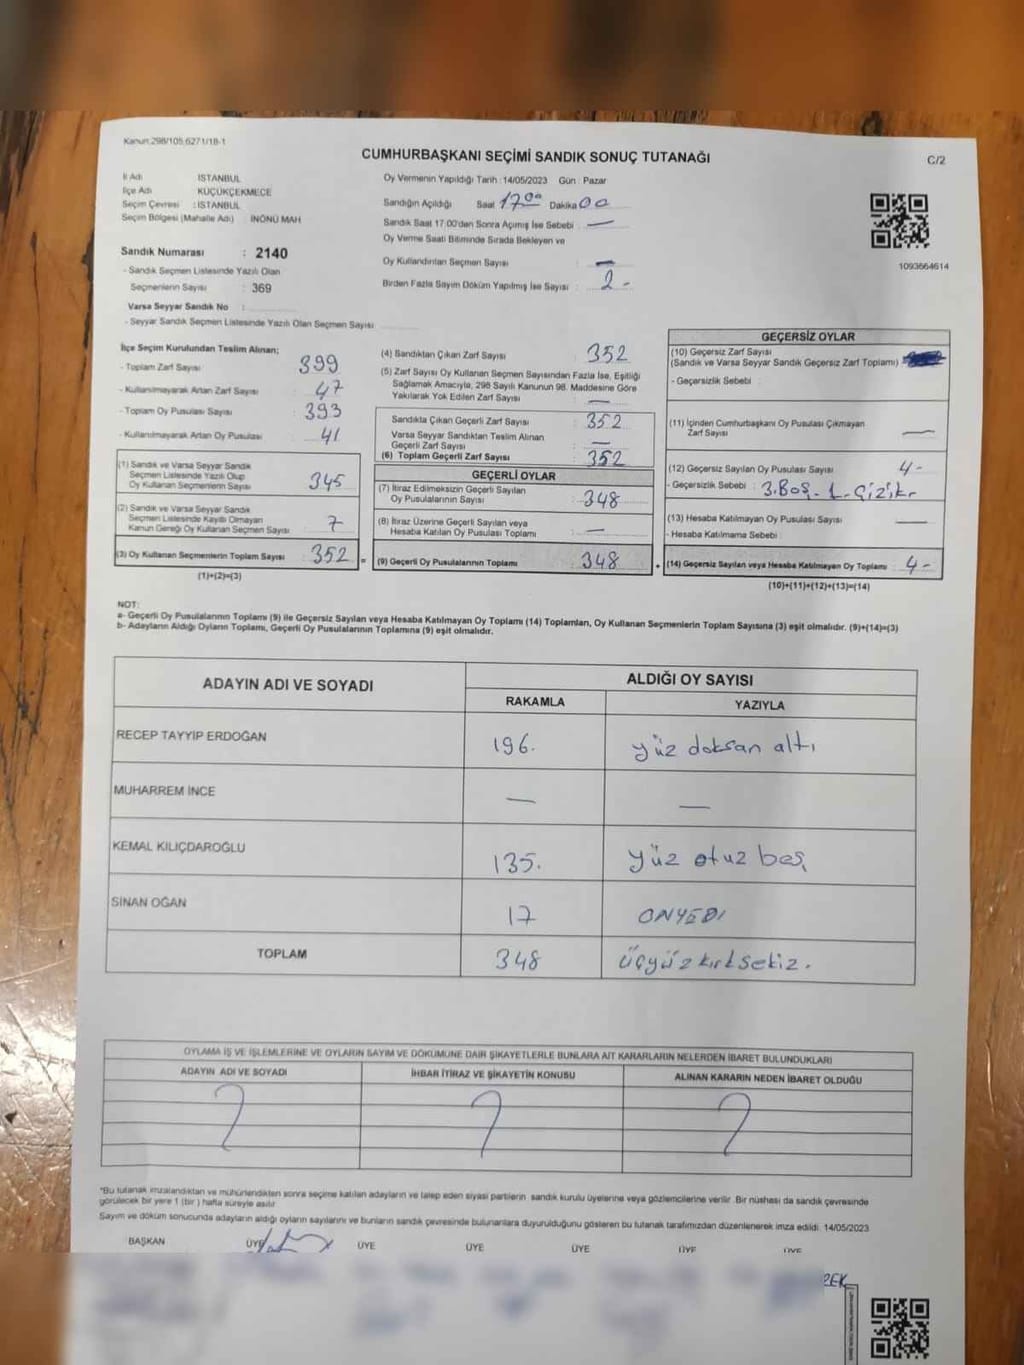 Kanun:298/105,6271/18-1
CUMHURBAŞKANI SEÇİMİ SANDIK SONUÇ TUTANAĞI
C/2
İl Adı : İSTANBUL
İlçe Adı : KÜÇÜKÇEKMECE
Seçim Çevresi : İSTANBUL
Seçim Bölgesi (Mahalle Adı) : İNÖNÜ MAH
Sandık Numarası : 2140
- Sandık Seçmen Listesinde Yazılı Olan
Seçmenlerin Sayısı : 369
Varsa Seyyar Sandık No :
- Seyyar Sandık Seçmen Listesinde Yazılı Olan Seçmen Sayısı
Oy Vermenin Yapıldığı Tarih : 14/05/2023 Gün : Pazar
Sandığın Açıldığı Saat 17.00 Dakika 00
Sandık Saat 17:00'den Sonra Açılmış İse Sebebi : —
Oy Verme Saati Bitiminde Sırada Bekleyen ve
Oy Kullandırılan Seçmen Sayısı : —
Birden Fazla Sayım Döküm Yapılmış İse Sayısı : 2 -
1093664614
İlçe Seçim Kurulundan Teslim Alınan;
- Toplam Zarf Sayısı : 399
- Kullanılmayarak Artan Zarf Sayısı : 47
- Toplam Oy Pusulası Sayısı : 393
- Kullanılmayarak Artan Oy Pusulası : 41
(1) Sandık ve Varsa Seyyar Sandık
Seçmen Listesinde Yazılı Olup
Oy Kullanan Seçmenlerin Sayısı : 345
(2) Sandık ve Varsa Seyyar Sandık
Seçmen Listesinde Kayıtlı Olmayan
Kanun Gereği Oy Kullanan Seçmen Sayısı : 7
(3) Oy Kullanan Seçmenlerin Toplam Sayısı : 352 =
(1)+(2)=(3)
(4) Sandıktan Çıkan Zarf Sayısı : 352
(5) Zarf Sayısı Oy Kullanan Seçmen Sayısından Fazla İse, Eşitliği
Sağlamak Amacıyla, 298 Sayılı Kanunun 98. Maddesine Göre
Yakılarak Yok Edilen Zarf Sayısı : —
Sandıkta Çıkan Geçerli Zarf Sayısı : 352
Varsa Seyyar Sandıktan Teslim Alınan
Geçerli Zarf Sayısı : —
(6) Toplam Geçerli Zarf Sayısı : 352
GEÇERLİ OYLAR
(7) İtiraz Edilmeksizin Geçerli Sayılan
Oy Pusulalarının Sayısı : 348
(8) İtiraz Üzerine Geçerli Sayılan veya
Hesaba Katılan Oy Pusulası Toplamı : —
(9) Geçerli Oy Pusulalarının Toplamı : 348 +
GEÇERSİZ OYLAR
(10) Geçersiz Zarf Sayısı
(Sandık ve Varsa Seyyar Sandık Geçersiz Zarf Toplamı)
- Geçersizlik Sebebi :
(11) İçinden Cumhurbaşkanı Oy Pusulası Çıkmayan
Zarf Sayısı : —
(12) Geçersiz Sayılan Oy Pusulası Sayısı : 4 -
- Geçersizlik Sebebi : 3.Boş - 1.Çizik
(13) Hesaba Katılmayan Oy Pusulası Sayısı : —
- Hesaba Katılmama Sebebi :
(14) Geçersiz Sayılan veya Hesaba Katılmayan Oy Toplamı : 4 -
(10)+(11)+(12)+(13)=(14)
NOT:
a- Geçerli Oy Pusulalarının Toplamı (9) ile Geçersiz Sayılan veya Hesaba Katılmayan Oy Toplamı (14) Toplamları, Oy Kullanan Seçmenlerin Toplam Sayısına (3) eşit olmalıdır. (9)+(14)=(3)
b- Adayların Aldığı Oyların Toplamı, Geçerli Oy Pusulalarının Toplamına (9) eşit olmalıdır.
ADAYIN ADI VE SOYADI ALDIĞI OY SAYISI
RAKAMLA YAZIYLA
RECEP TAYYİP ERDOĞAN 196. yüz doksan altı
MUHARREM İNCE — —
KEMAL KILIÇDAROĞLU 135. yüz otuz beş
SİNAN OĞAN 17 ONYEDİ
TOPLAM 348 üçyüz kırk sekiz.
OYLAMA İŞ VE İŞLEMLERİNE VE OYLARIN SAYIM VE DÖKÜMÜNE DAİR ŞİKAYETLERLE BUNLARA AİT KARARLARIN NELERDEN İBARET BULUNDUKLARI
ADAYIN ADI VE SOYADI İHBAR İTİRAZ VE ŞİKAYETİN KONUSU ALINAN KARARIN NEDEN İBARET OLDUĞU
*Bu tutanak imzalandıktan ve mühürlendikten sonra seçime katılan adayların ve talep eden siyasi partilerin sandık kurulu üyelerine veya gözlemcilerine verilir. Bir nüshası da sandık çevresinde
görülecek bir yere 1 (bir) hafta süreyle asılır.
Sayım ve döküm sonucunda adayların aldığı oyların sayılarını ve bunların sandık çevresinde bulunanlara duyurulduğunu gösteren bu tutanak tarafımızdan düzenlenerek imza edildi. 14/05/2023
BAŞKAN ÜYE ÜYE ÜYE ÜYE ÜYE ÜYE